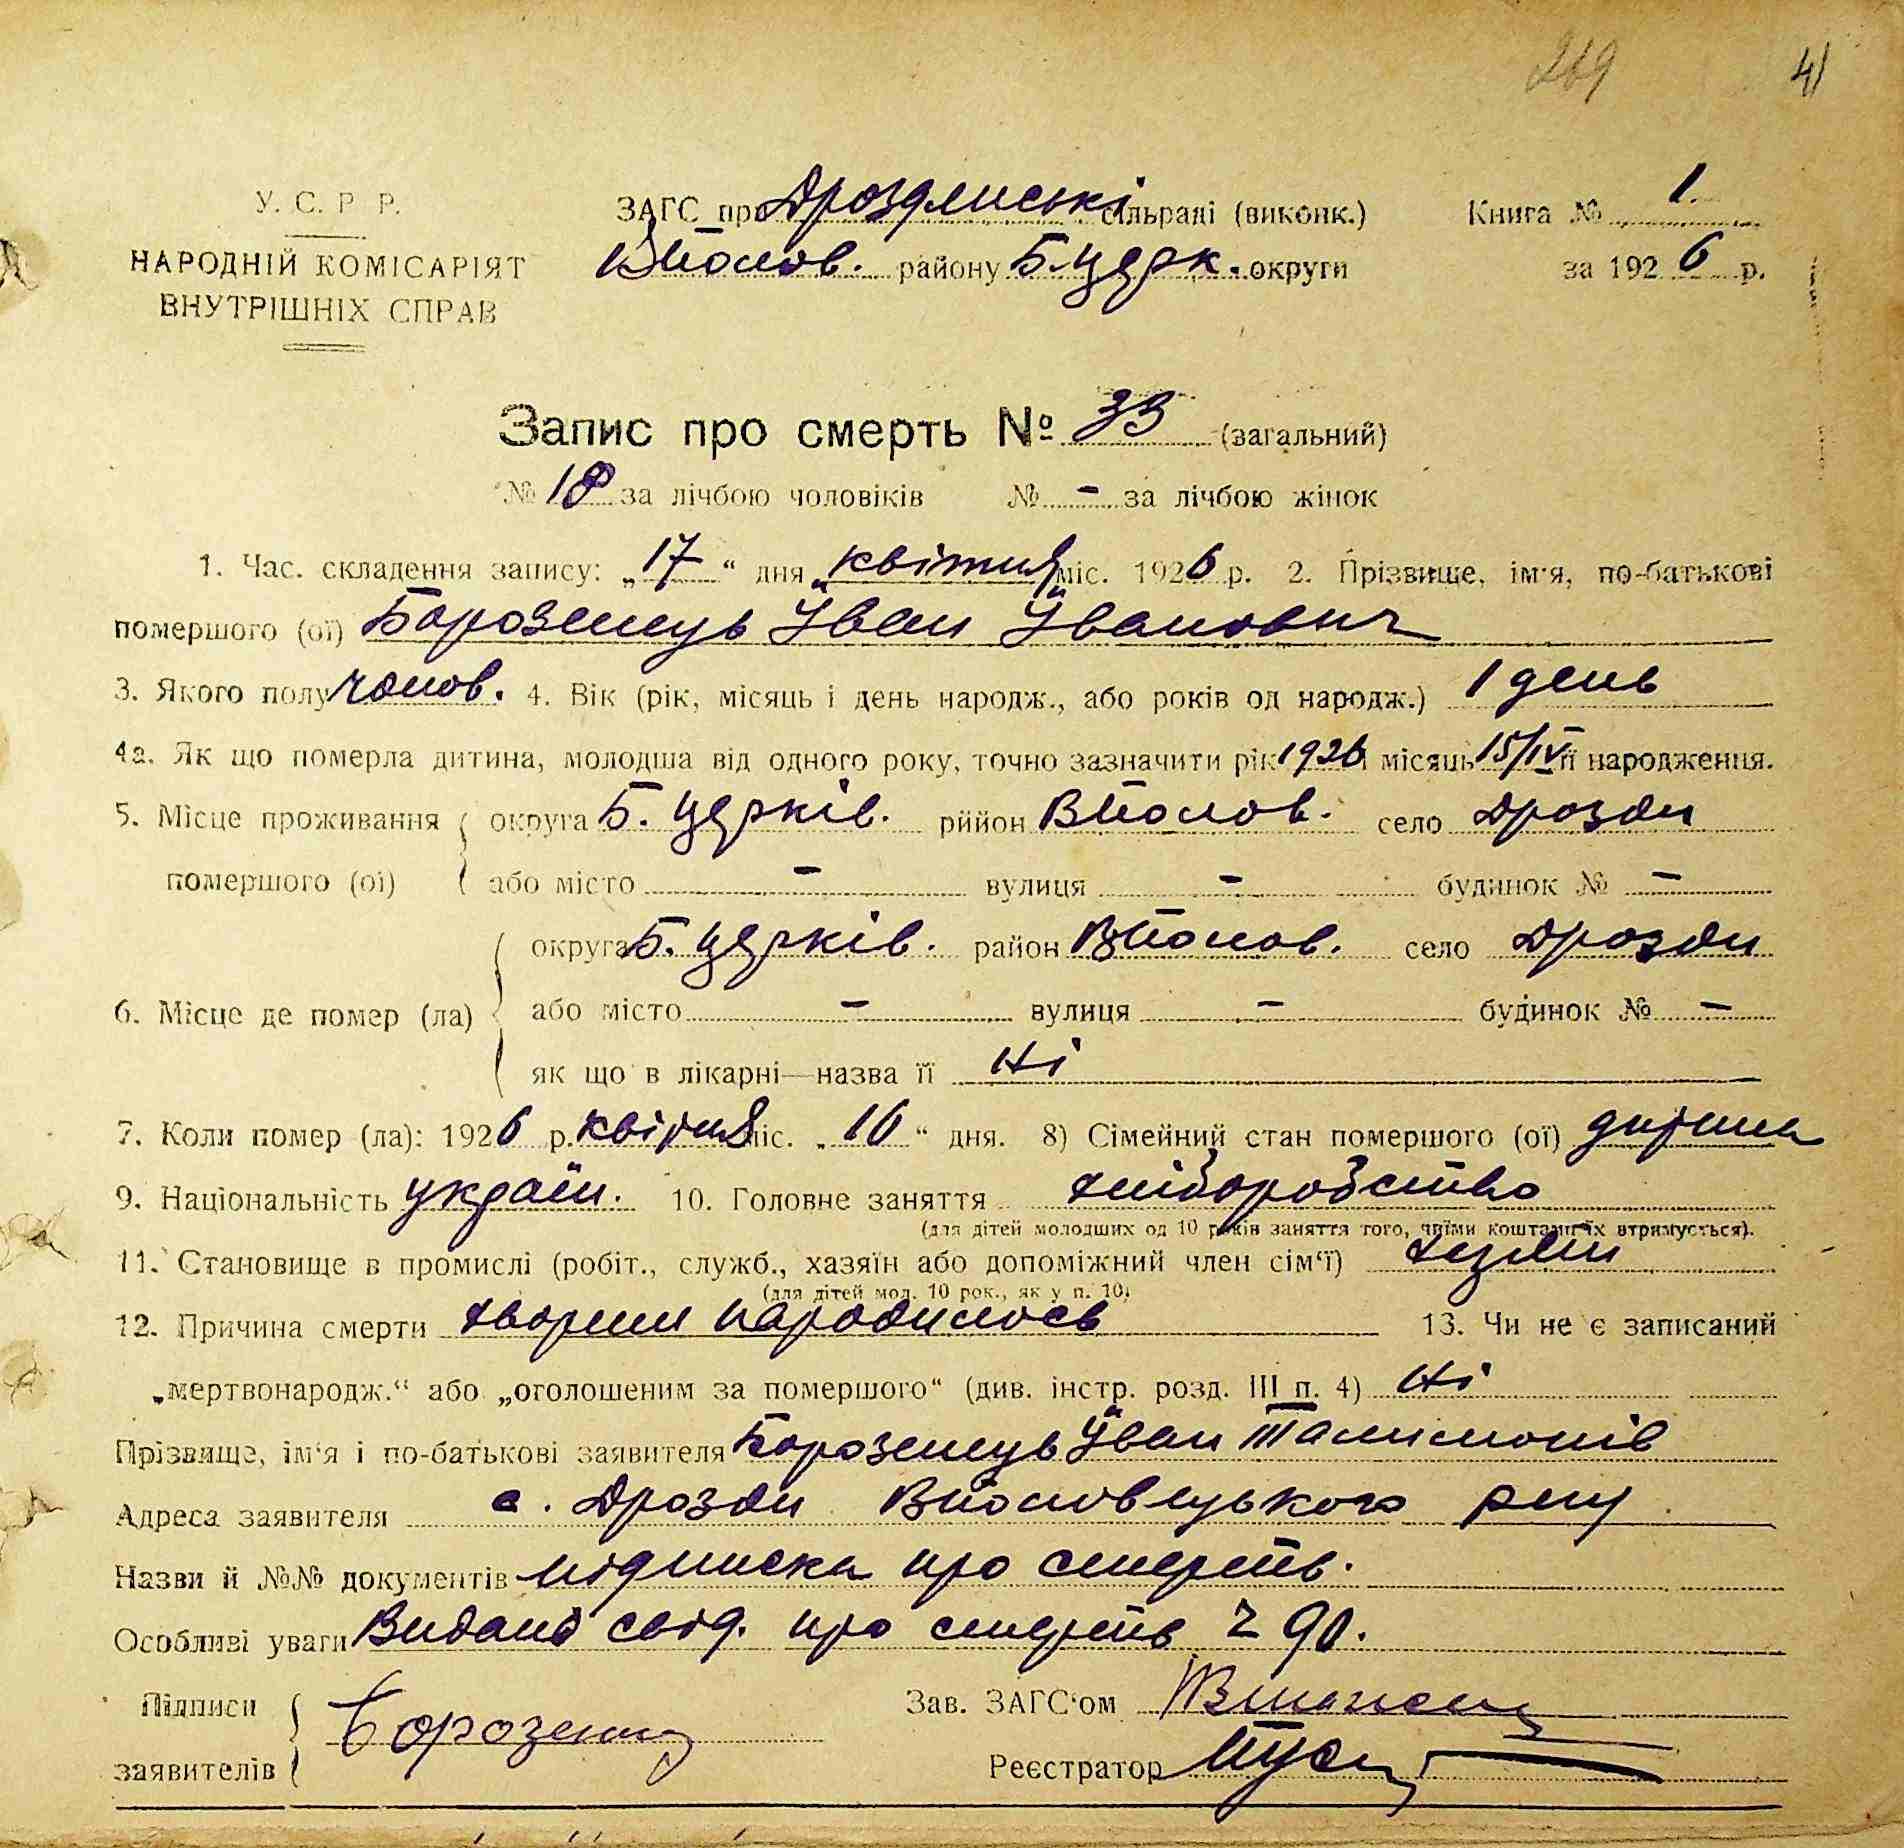 269 41
У. С. Р Р.
НАРОДНІЙ КОМІСАРІЯТ
ВНУТРІШНІХ СПРАВ
ЗАГС при Дроздянські сільраді (виконк.)
Вполов. району Б. церк. округи
Книга № 1.
за 1926 р.
Запис про смерть № 33 (загальний)
№ 18 за лічбою чоловіків № - за лічбою жінок
1. Час. складення запису: „17“ дня „квітня міс. 1926 р. 2. Прізвище, ім'я, по-батькові
помершого (ої) Борозенець Іван Іванович
3. Якого полу чолов. 4. Вік (рік, місяць і день народж., або років од народж.) 1 день
4а. Як що померла дитина, молодша від одного року, точно зазначити рік 1926 і місяць 15/IV її народження.
5. Місце проживання помершого (ої)
округа Б. церків. рийон Вполов. село Дрозди
або місто - вулиця - будинок № -
6. Місце де помер (ла)
округа Б. церків. район Вполов. село Дрозди
або місто - вулиця - будинок № -
як що в лікарні—назва її Ні
7. Коли помер (ла): 1926 р. квітня міс. „16“ дня. 8) Сімейний стан помершого (ої) дитина
9. Національність україн. 10. Головне заняття хліборобство
(для дітей молодших од 10 років заняття того, чиїми коштами їх втримується).
11. Становище в промислі (робіт., служб., хазяїн або допоміжний член сім‘ї) хазяїн
(для дітей мол. 10 рок., як у п. 10)
12. Причина смерти хворим народилось 13. Чи не є записаний
„мертвонародж.“ або „оголошеним за помершого“ (див. інстр. розд. III п. 4) Ні
Прізвище, ім‘я і по-батькові заявителя Борозенець Іван Талимонів
Адреса заявителя с. Дрозди Вполовецького р-ну
Назви й №№ документів підписка про смерть.
Особливі уваги Видано свід. про смерть Ч 90.
Підписи заявителів Борозенець
Зав. ЗАГС‘ом
Реєстратор